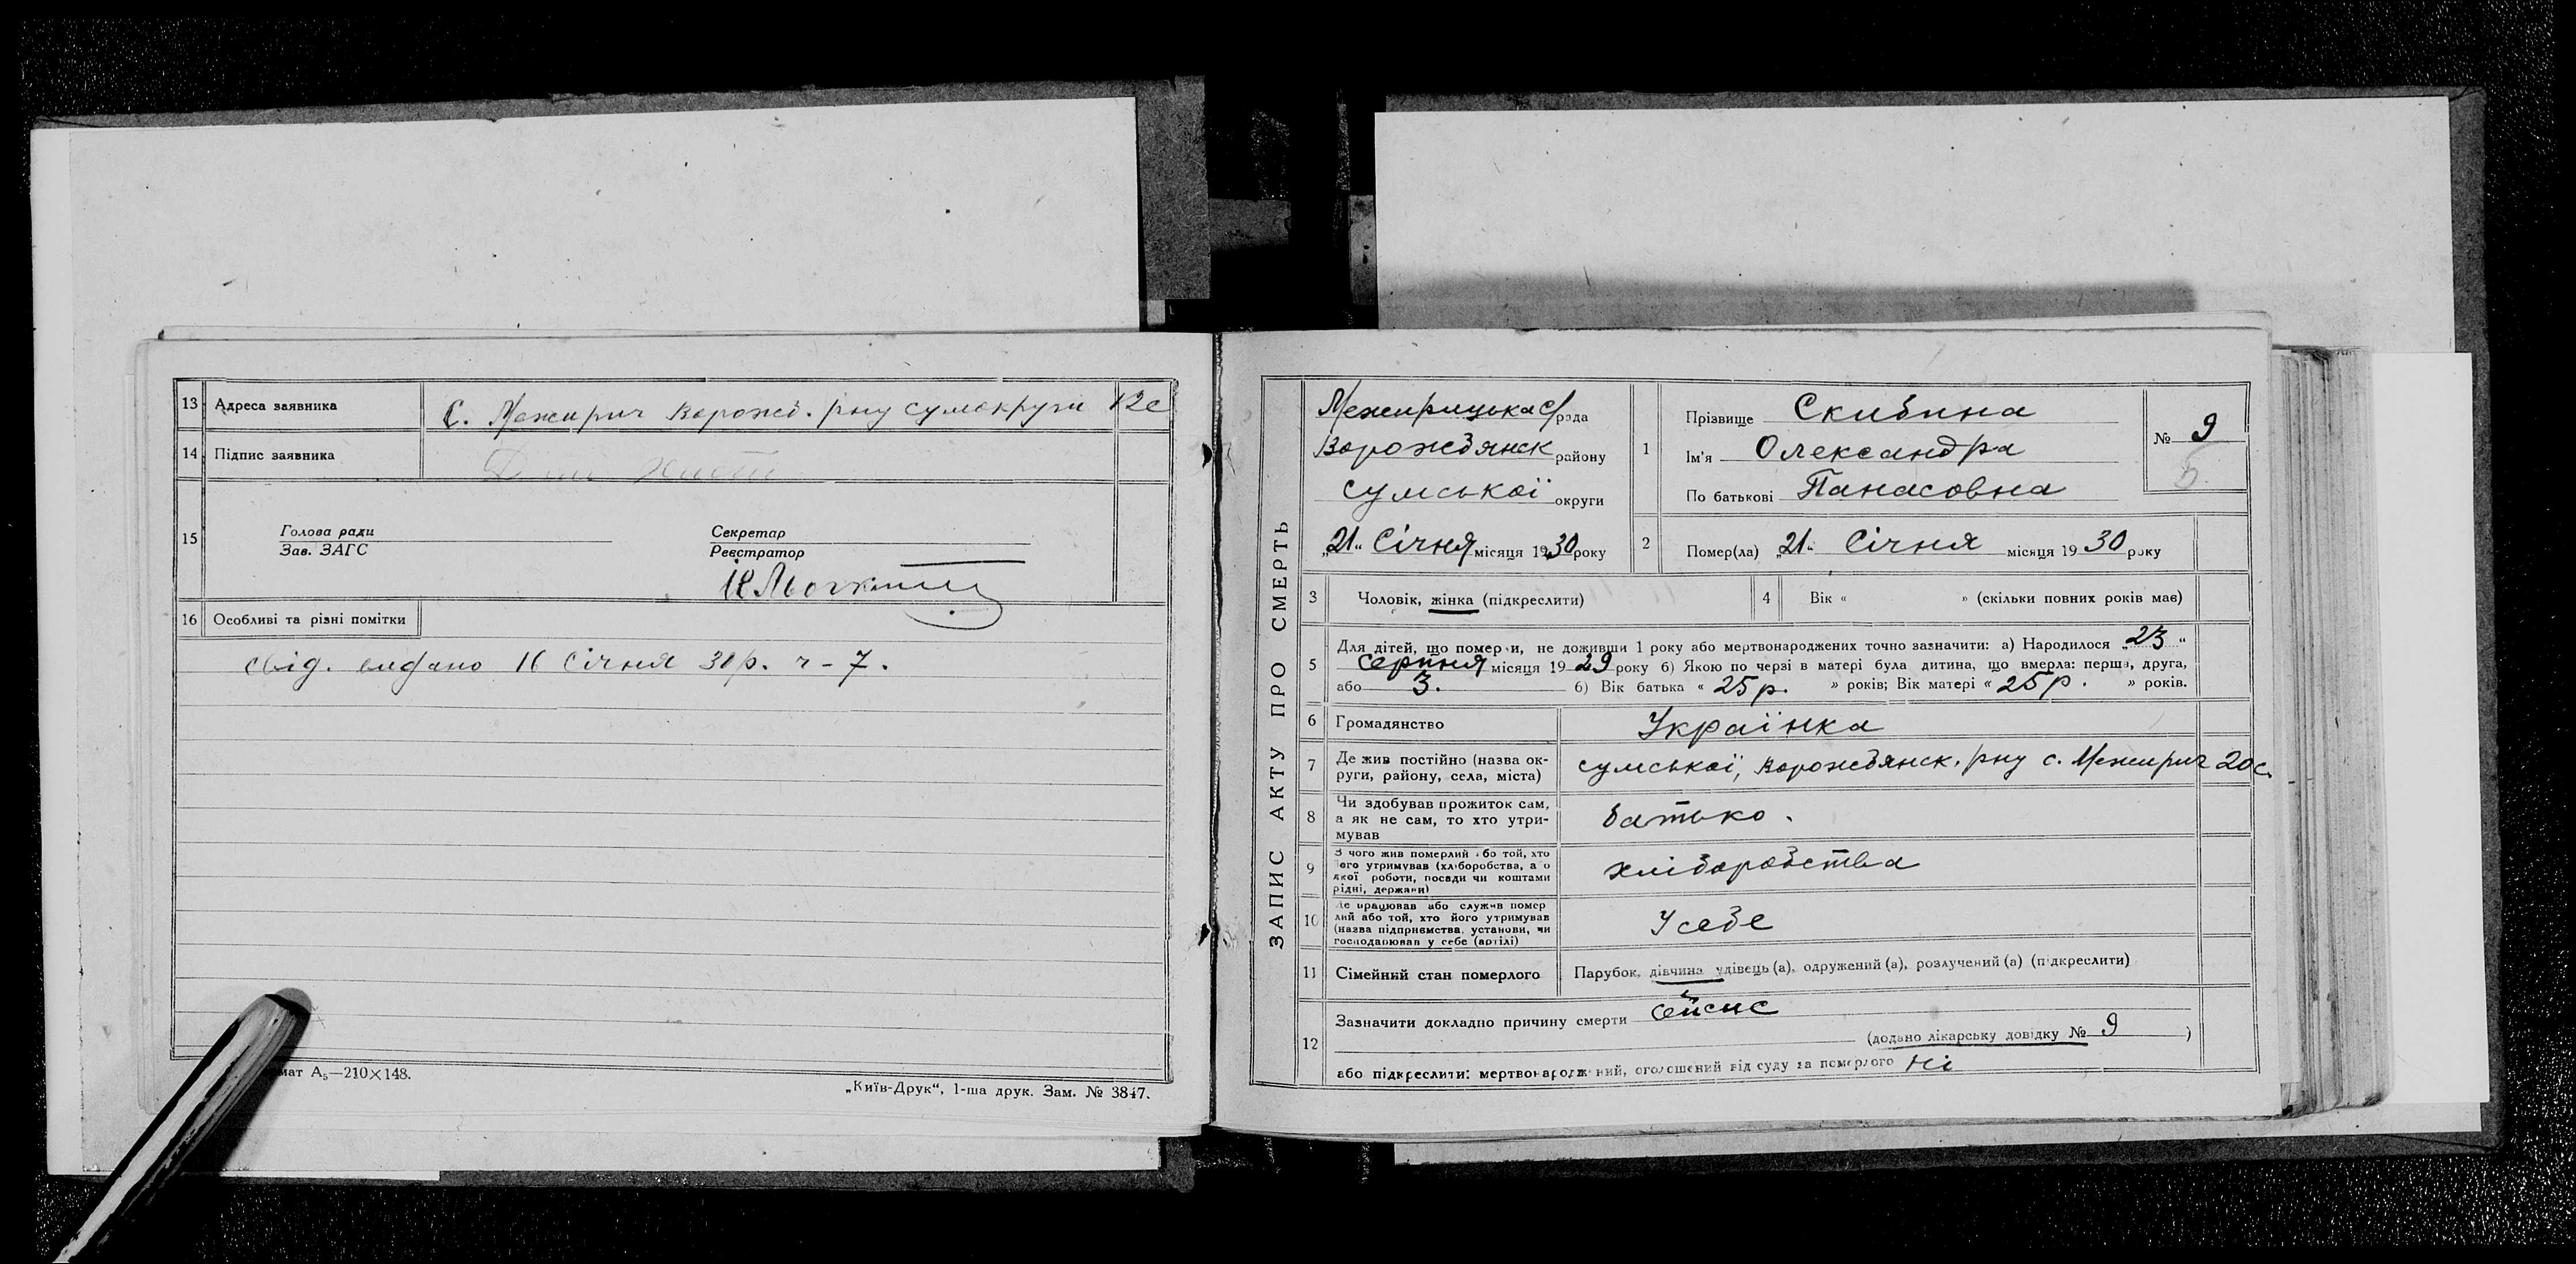 13 Адреса заявника С. Межирич Ворожб. рну Сумокруги 12с
14 Підпис заявника
15 Голова ради Секретар
Зав. ЗАГС Реєстратор
16 Особливі та різні помітки
свід. видано 16 Січня 30р. ч-7.
мат А5—210×148.
„Київ-Друк“, 1-ша друк. Зам. № 3847.
ЗАПИС АКТУ ПРО СМЕРТЬ
Межирицька с/рада
Ворожбянск району
Сумської округи
„21“ Січня місяця 1930 року
1 Прізвище Скибина
Ім'я Олександра
По батькові Панасовна
№ 9
2 Помер(ла) „21“ Січня місяця 1930 року
3 Чоловік, жінка (підкреслити)
4 Вік « » (скільки повних років має)
5 Для дітей, що померли, не доживши 1 року або мертвонароджених точно зазначити: а) Народилося „23“
Серпня місяця 1929 року б) Якою по черзі в матері була дитина, що вмерла: перша, друга,
або 3. б) Вік батька « 25р. » років; Вік матері « 25р. » років.
6 Громадянство Українка
7 Де жив постійно (назва ок-
руги, району, села, міста) Сумської, Ворожбянск. рну с. Межирич 20с.
8 Чи здобував прожиток сам,
а як не сам, то хто утри-
мував батько.
9 З чого жив померлий або той, хто
його утримував (хліборобства, або
якої роботи, посади чи коштами
рідні, держави) хліборобства
10 Де працював або служив помер
лий або той, хто його утримував
(назва підприємства, установи, чи
господарював у себе (артілі) У себе
11 Сімейний стан померлого Парубок, дівчина удівець (а), одружений (а), розлучений (а) (підкреслити)
12 Зазначити докладно причину смерти сепсис
(додано лікарську довідку № 9 )
або підкреслити: мертвонароджений, оголошений від суду за померлого Ні